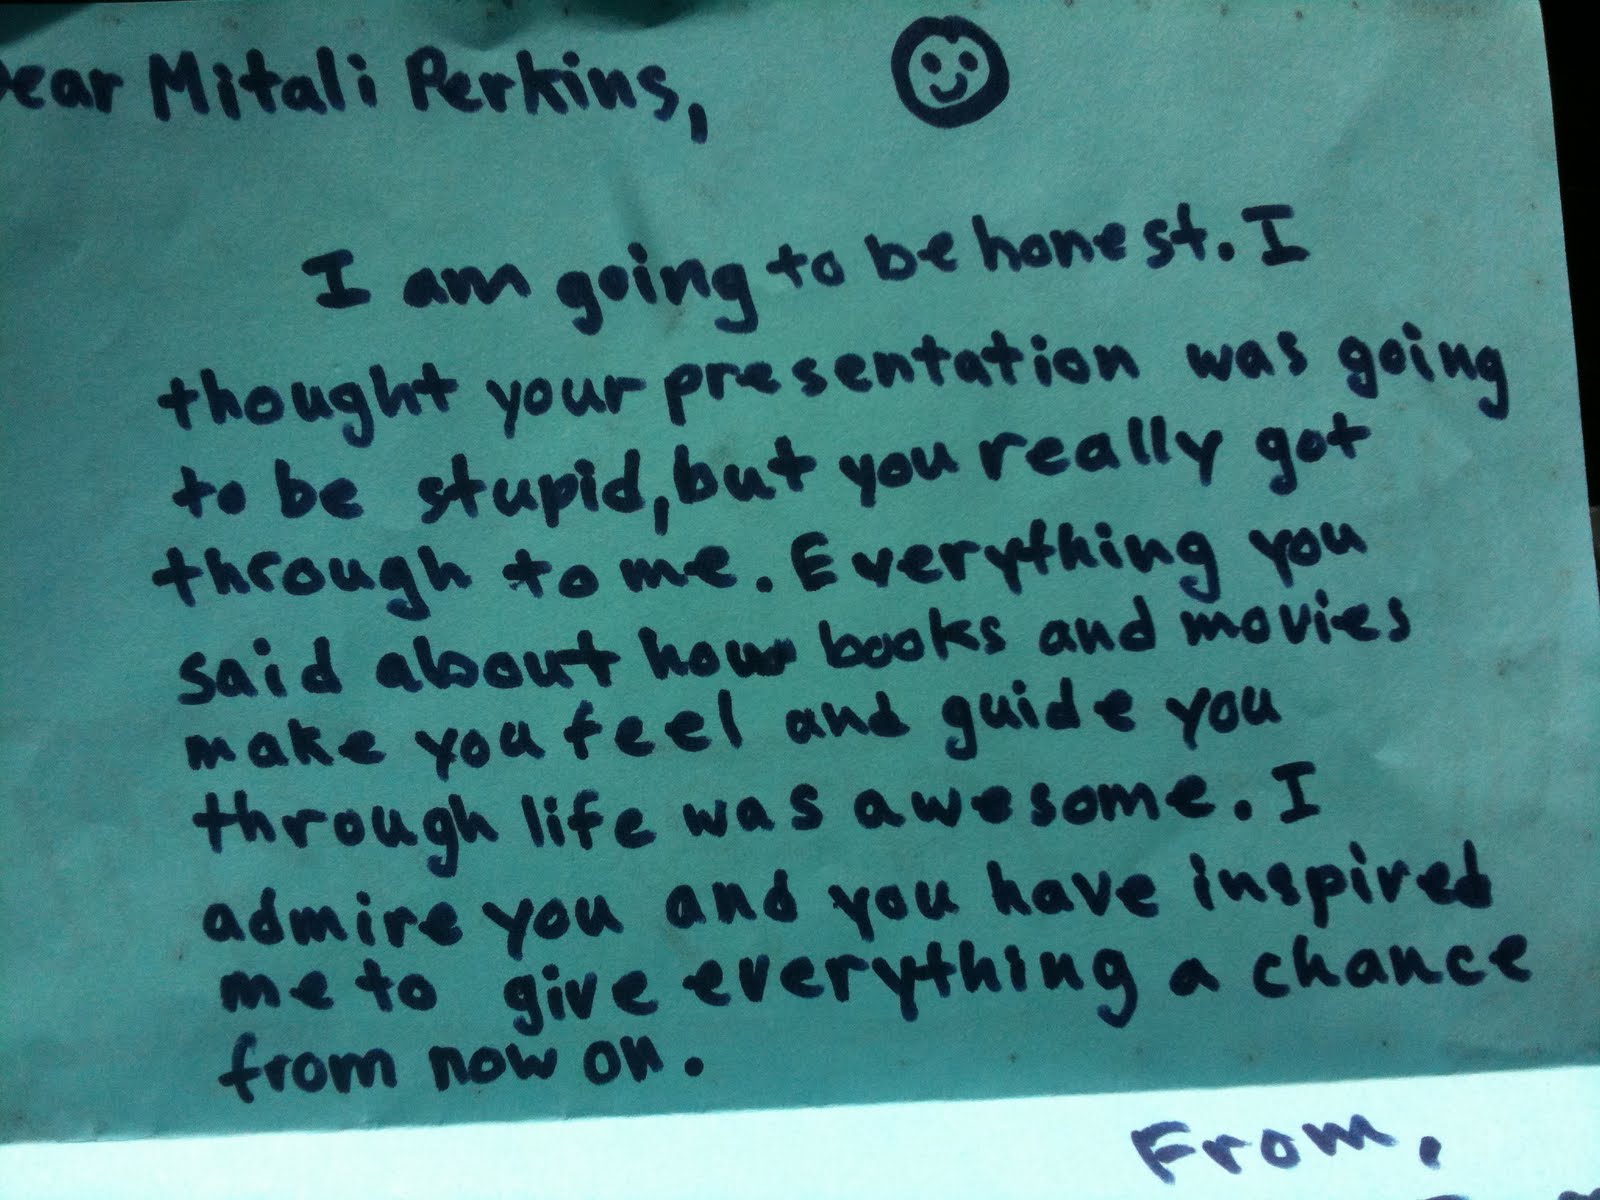 Dear Mitali Perkins,
I am going to be honest. I
thought your presentation was going
to be stupid, but you really got
through to me. Everything you
said about how books and movies
make you feel and guide you
through life was awesome. I
admire you and you have inspired
me to give everything a chance
from now on.
From,